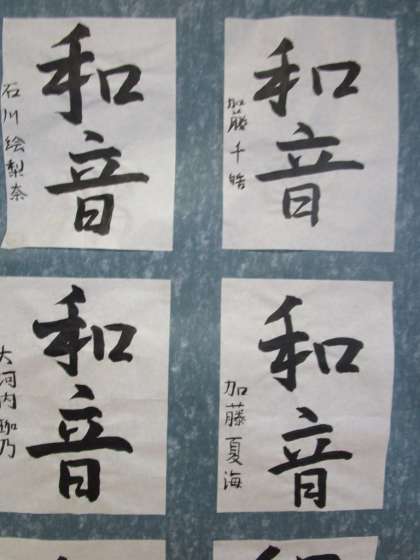 和音
加藤千皓
和音
石川絵梨奈
和音
加藤夏海
和音
大河内珈乃
和